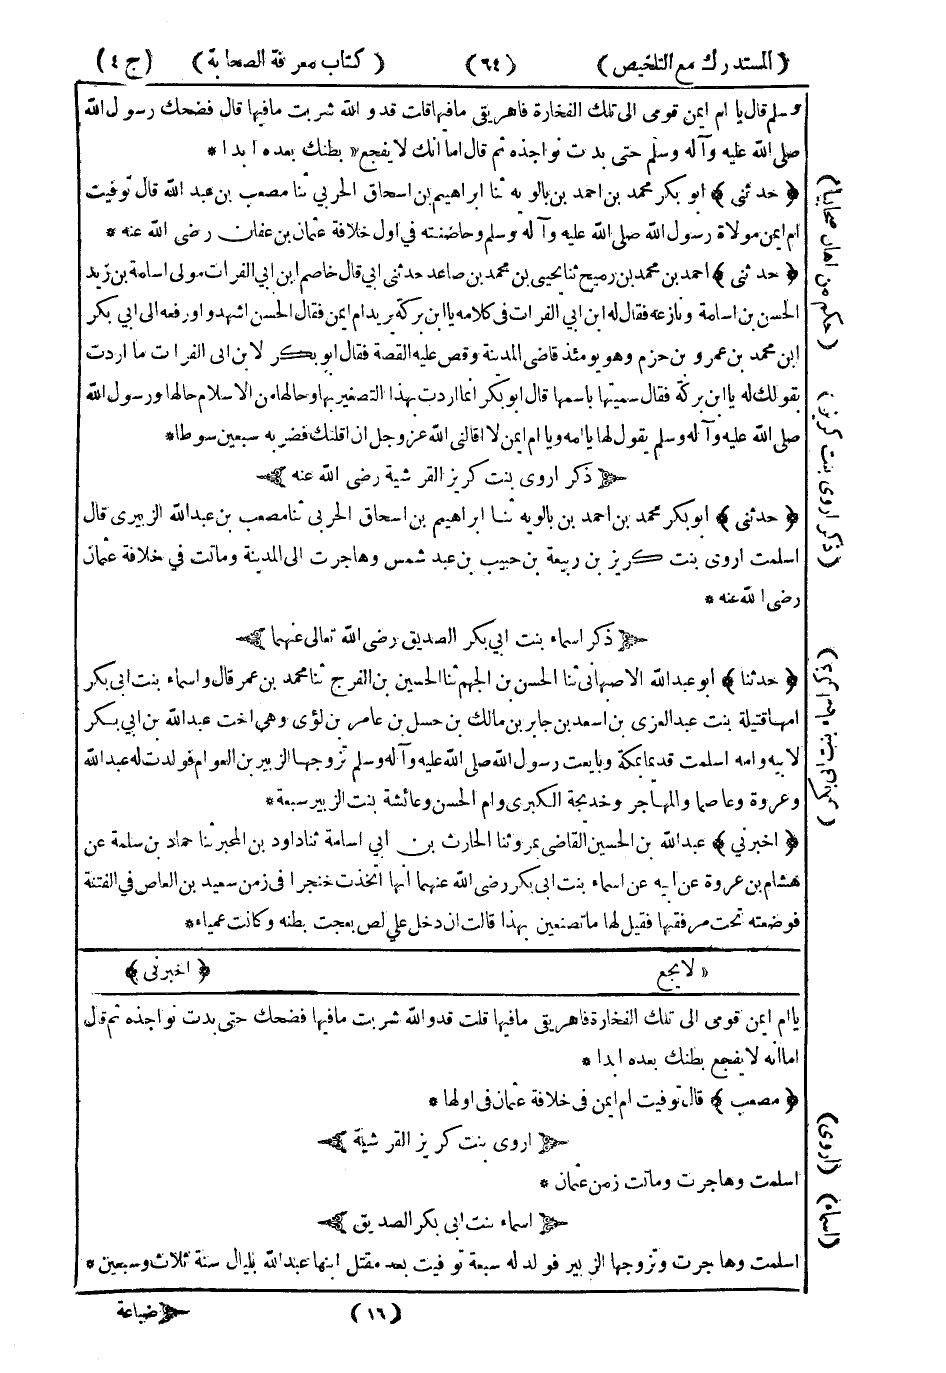 (المستدرك مع التلخيص) (٦٤) (كتاب معرفة الصحابة) (ج ٤)
وسلم قال يا ام ايمن قومى الى تلك الفخارة فاهريقي مافيها قلت قد و الله شربت مافيها قال فضحك رسول الله
صلى الله عليه وآله وسلم حتى بدت نواجذه ثم قال اما انك لا يفجع « بطنك بعده ابدا *
﴿ حدثنى ﴾ ابو بكر محمد بن احمد بن بالويه ثنا ابراهيم بن اسحاق الحربي ثنا مصعب بن عبد الله قال توفيت
ام ايمن مولاة رسول الله صلى الله عليه وآله وسلم وحاضنته في اول خلافة عثمان بن عفان رضى الله عنه *
﴿ حدثنى ﴾ احمد بن محمد بن رميح ثنا يحيى بن محمد بن صاعد حدثنى ابي قال خاصم ابن ابي الفرات مولى اسامة بن زيد
الحسن بن اسامة ونازعه فقال له ابن ابي الفرات في كلامه يا ابن بركة يريد ام ايمن فقال الحسن اشهدوا ورفعه الى ابي بكر
ابن محمد بن عمرو بن حزم وهو يومئذ قاضى المدينة وقص عليه القصة فقال ابو بكر لابن ابى الفرات ما اردت
بقولك له يا ابن بركة فقال سميتها باسمها قال ابو بكر انما اردت بهذا التصغير بها وحالها من الاسلام حالها ورسول الله
صلى الله عليه وآله وسلم يقول لها يا امه ويا ام ايمن لا اقالنى الله عزوجل ان اقلتك فضربه سبعين سوطا *
ذكر اروى بنت كريز القرشية رضى الله عنه
﴿ حدثنى ﴾ ابو بكر محمد بن احمد بن بالويه ثنا ابراهيم بن اسحاق الحربى ثنا مصعب بن عبدالله الزبيرى قال
اسلمت اروى بنت كريز بن ربيعة بن حبيب بن عبد شمس وهاجرت الى المدينة وماتت في خلافة عثمان
رضى الله عنه *
ذكر اسماء بنت ابي بكر الصديق رضى الله تعالى عنهما
﴿ حدثنا ﴾ ابو عبدالله الاصبهانى ثنا الحسن بن الجهم ثنا الحسين بن الفرج ثنا محمد بن عمر قال واسماء بنت ابى بكر
امها قتيلة بنت عبد العزى بن اسعد بن جابر بن مالك بن حسل بن عامر بن لؤى وهى اخت عبدالله بن ابي بكر
لابيه وامه اسلمت قديما بمكة وبايعت رسول الله صلى الله عليه وآله وسلم تزوجها الزبير بن العوام فولدت له عبدالله
وعروة وعاصما والمهاجر وخديجة الكبرى وام الحسن وعائشة بنت الزبير سبعة *
﴿ اخبرني ﴾ عبدالله بن الحسين القاضى بمرو ثنا الحارث بن ابي اسامة ثنا داود بن المحبر ثنا حماد بن سلمة عن
هشام بن عروة عن ابيه عن اسماء بنت ابى بكر رضى الله عنهما انها اتخذت خنجرا في زمن سعيد بن العاص في الفتنة
فوضعته تحت مرفقها فقيل لها ما تصنعين بهذا قالت ان دخل علي لص بعجت بطنه وكانت عمياء *
« لا يجع ﴿ اخبرنى ﴾
يا ام ايمن قومى الى تلك الفخارة فاهريقى مافيها قلت قد والله شربت مافيها فضحك حتى بدت نواجذه ثم قال
اما انه لا يفجع بطنك بعده ابدا *
﴿ مصعب ﴾ قال توفيت ام ايمن فى خلافة عثمان فى اولها *
اروى بنت كريز القرشية
اسلمت وهاجرت وماتت زمن عثمان *
اسماء بنت ابى بكر الصديق
اسلمت وهاجرت وتزوجها الزبير فولد له سبعة توفيت بعد مقتل ابنها عبدالله بليال سنة ثلاث وسبعين *
(١٦) ضباعة
(حكم من اهان صحابيا)
(ذكر اروى بنت كريز)
(اروى)
(اسماء)